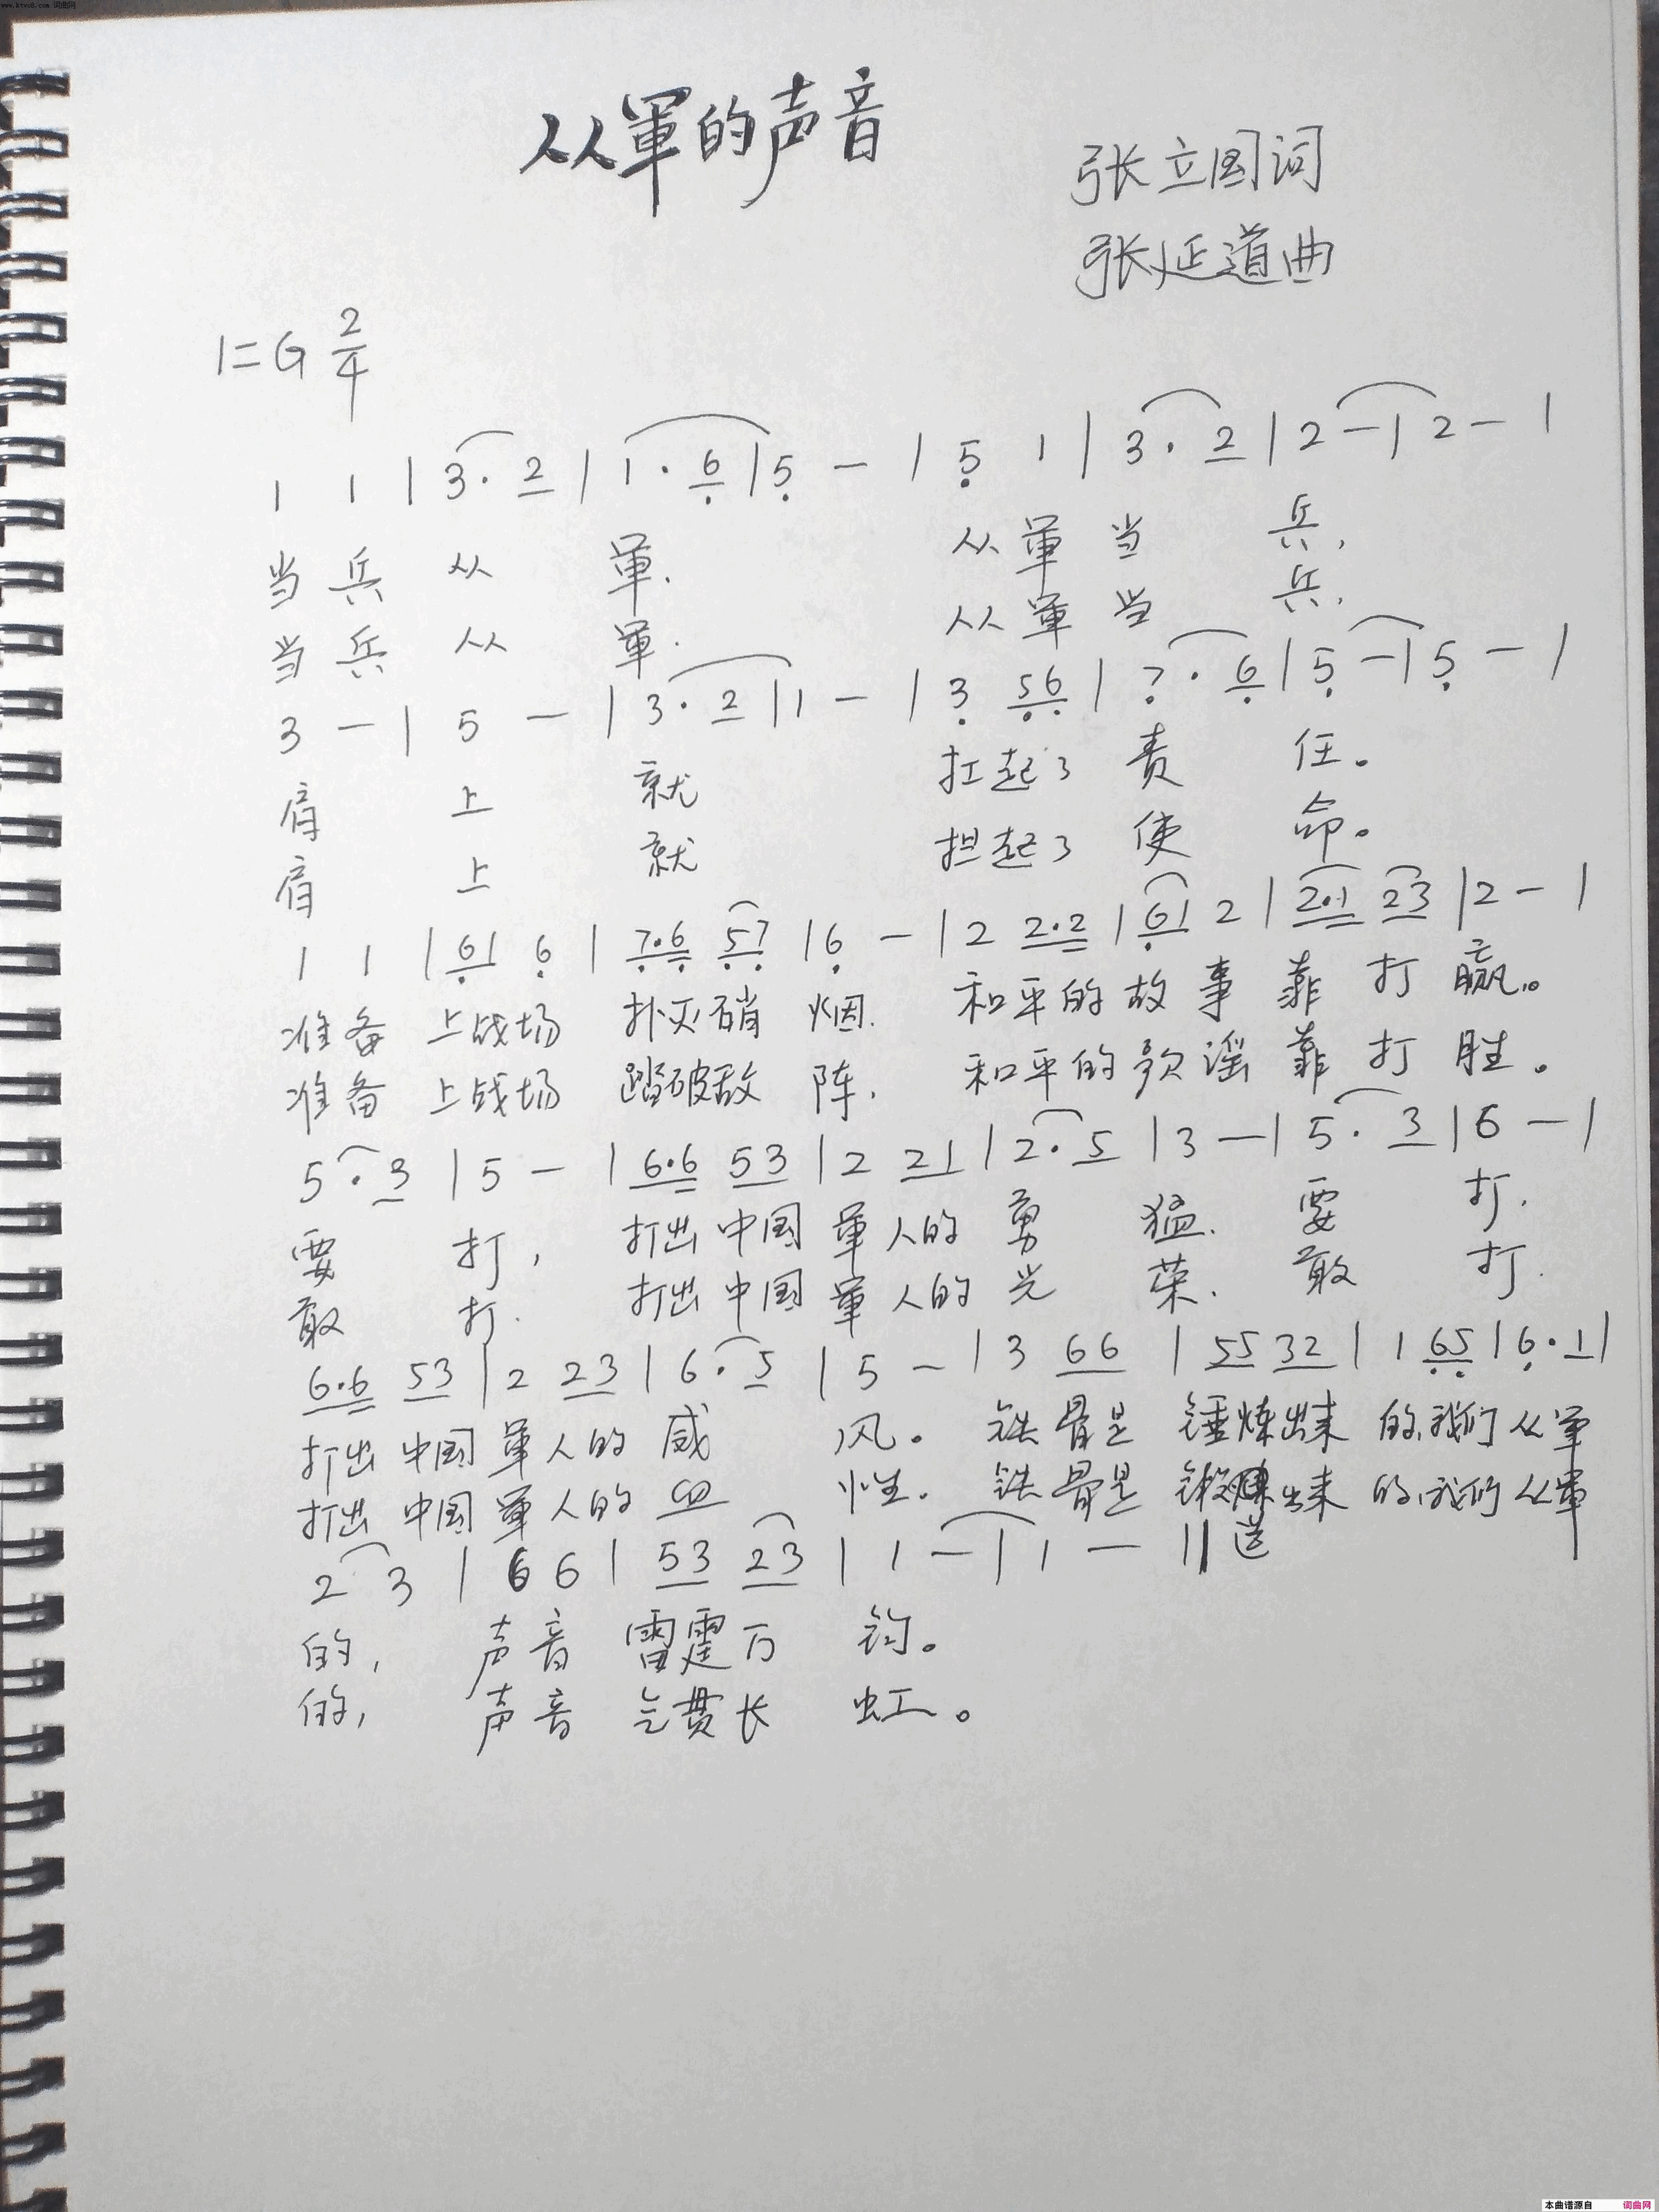 www.ktvc8.com 词曲网
从軍的声音
张立国词
张延道曲
1=G 2/4
1 1 | 3· 2 | 1· 6 | 5 — | 5 1 | 3· 2 | 2 — | 2 — |
当兵从軍. 从軍当兵,
当兵从軍. 从軍当兵,
3 — | 5 — | 3· 2 | 1 — | 3 56 | 7· 6 | 5 — | 5 — |
肩上就 扛起了责任。
肩上就 担起了使命。
1 1 | 61 6 | 7·6 57 | 6 — | 2 2·2 | 61 2 | 2·1 23 | 2 — |
准备上战场 扑灭硝烟. 和平的故事靠打赢。
准备上战场 踏破敌阵. 和平的歌谣靠打胜。
5· 3 | 5 — | 6·6 53 | 2 21 | 2· 5 | 3 — | 5· 3 | 6 — |
要打, 打出中国軍人的勇猛. 要打.
敢打. 打出中国軍人的光荣. 敢打.
6·6 53 | 2 23 | 6· 5 | 5 — | 3 66 | 55 32 | 1 65 | 6· 1 |
打出中国軍人的威风。 铁骨是锤炼出来的,我们从軍
打出中国軍人的血性. 铁骨是锻炼出来的,我们从軍
2 3 | 6 6 | 53 23 | 1 — | 1 — ||
的, 声音雷霆万钧。
的, 声音气贯长虹。
本曲谱源自 词曲网